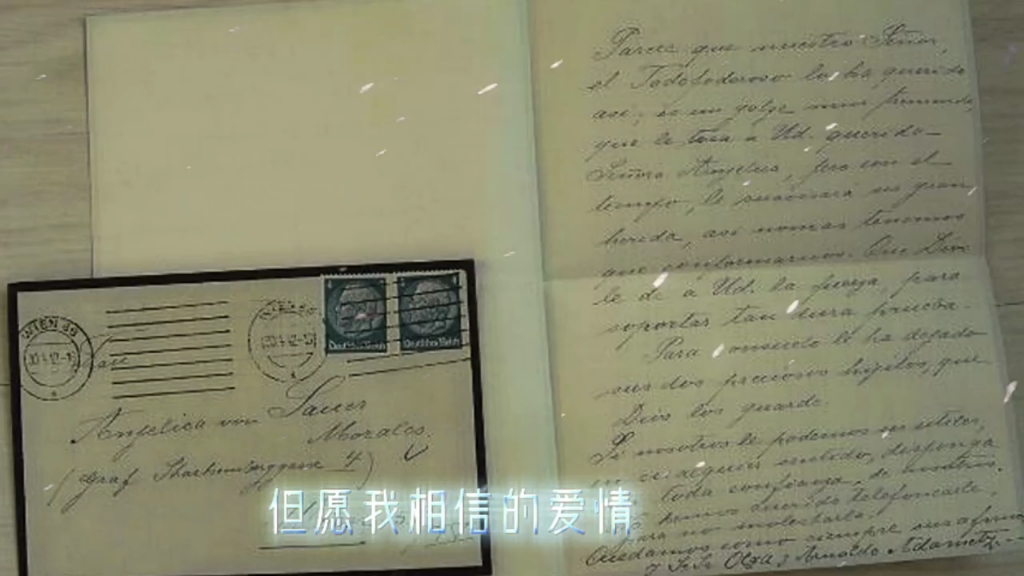 Parece que nuestro Señor,
el Todopoderoso lo ha querido
así; es un golpe muy tremendo,
que le toca a Ud. querida
Señora Angélica, pero con el
tiempo, le su gran
herida, así nomas tenemos
que conformarnos. Que Dios
le dé a Ud. la fuerza, para
soportar tan dura prueba.
Para consuelo le ha dejado
sus dos preciosos hijitos, que
Dios los guarde.
Si nosotros le podemos ser útiles,
en algún sentido, disponga
toda confianza, de nosotros.
telefonearle,
para no molestarla.
Quedamos como siempre
Olga y Arnoldo
WIEN
WIEN
Deutsches Reich
Deutsches Reich
Angelica von Sauer
Morales
(Graf Starhemberggasse 4)
但愿我相信的爱情